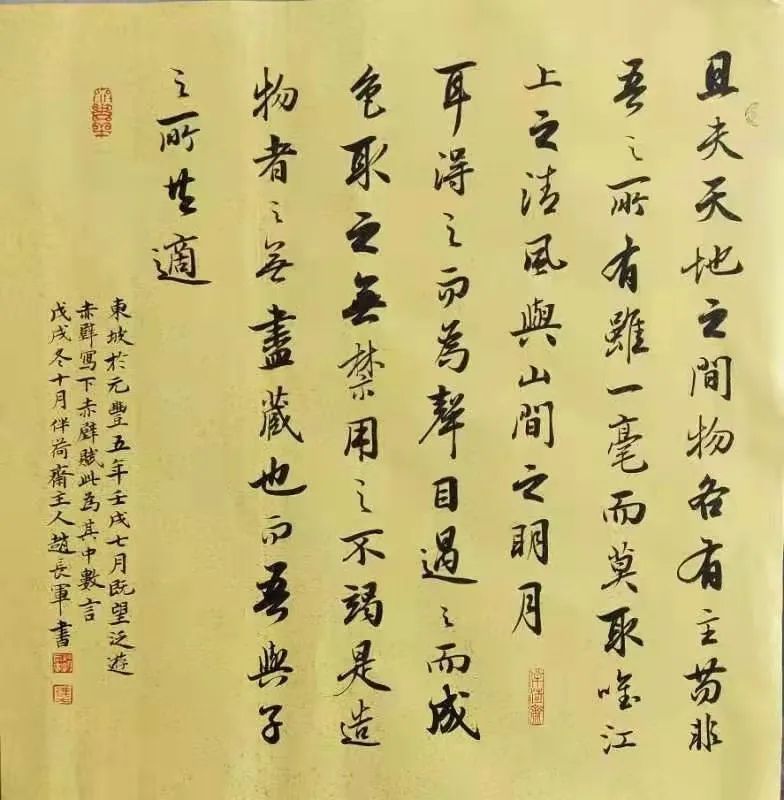 且夫天地之間物各有主茍非
吾之所有雖一毫而莫取唯江
上之清風與山間之明月
耳得之而為聲目遇之而成
色取之無禁用之不竭是造
物者之無盡藏也而吾與子
之所共適
東坡於元豐五年壬戌七月既望泛遊
赤壁寫下赤壁賦此為其中數言
戊戌冬十月伴荷齋主人趙長軍書